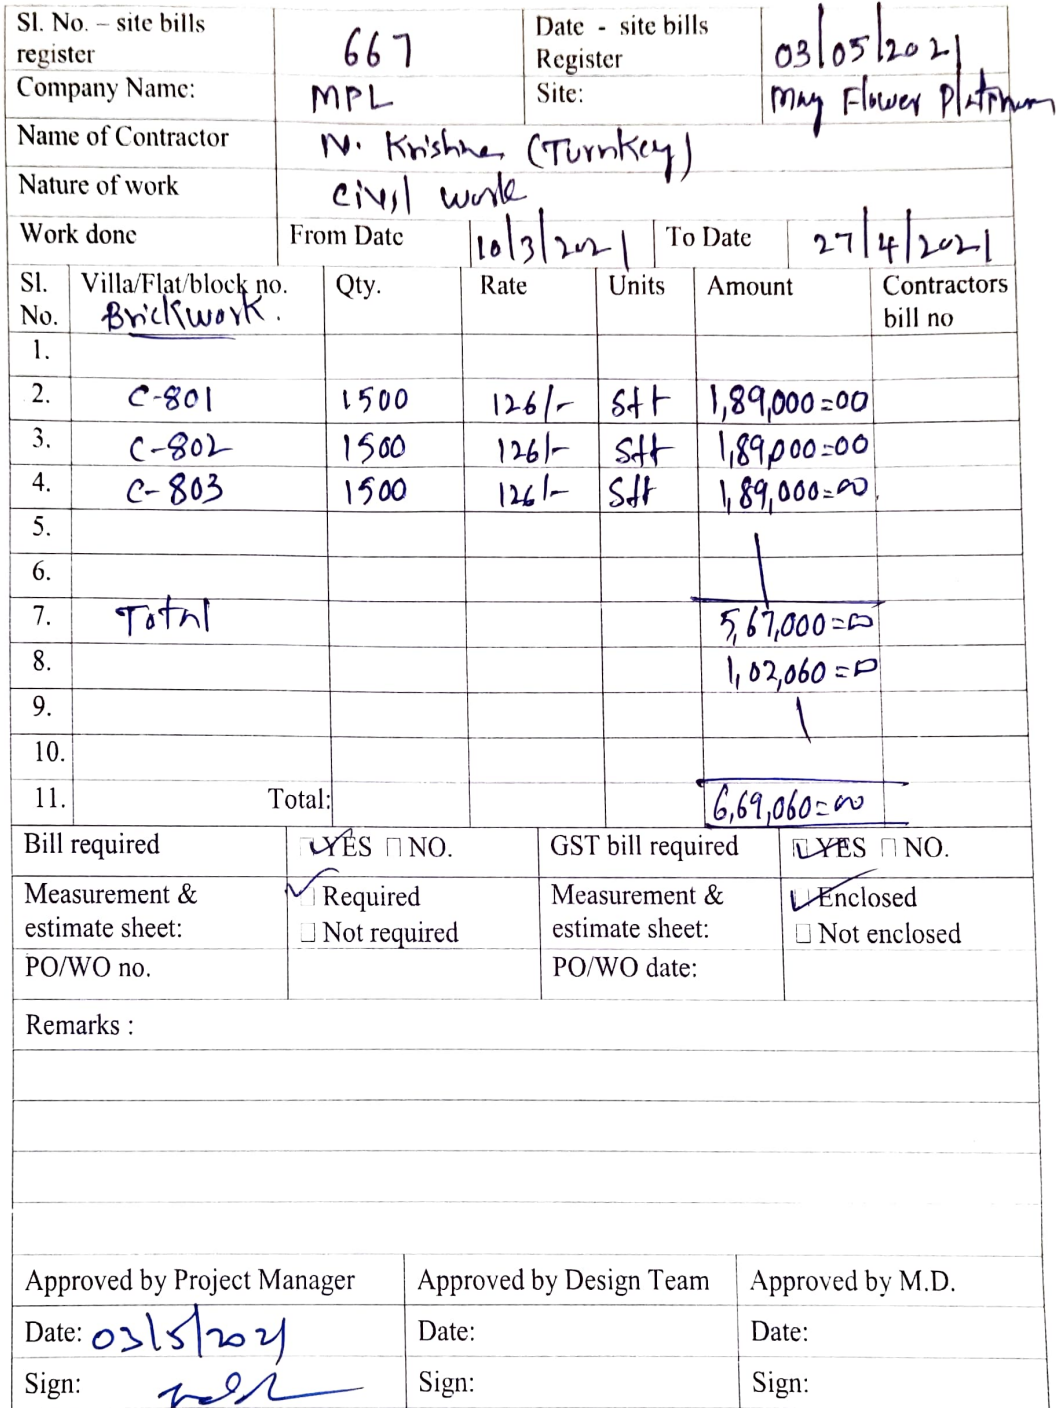 Sl. No. – site bills register 667 Date - site bills Register 03/05/2021
Company Name: MPL Site: May Flower Platinum
Name of Contractor N. Krishna (Turnkey)
Nature of work Civil work
Work done From Date 10/3/2021 To Date 27/4/2021
Sl. No. Villa/Flat/block no. Brickwork. Qty. Rate Units Amount Contractors bill no
1.
2. C-801 1500 126/- Sft 1,89,000=00
3. C-802 1500 126/- Sft 1,89,000=00
4. C-803 1500 126/- Sft 1,89,000=00
5.
6.
7. Total 5,67,000=00
8. 1,02,060=0
9.
10.
11. Total: 6,69,060=00
Bill required YES NO. GST bill required YES NO.
Measurement & estimate sheet: Required Not required Measurement & estimate sheet: Enclosed Not enclosed
PO/WO no. PO/WO date:
Remarks :
Approved by Project Manager Approved by Design Team Approved by M.D.
Date: 03/5/2021 Date: Date:
Sign: Sign: Sign: